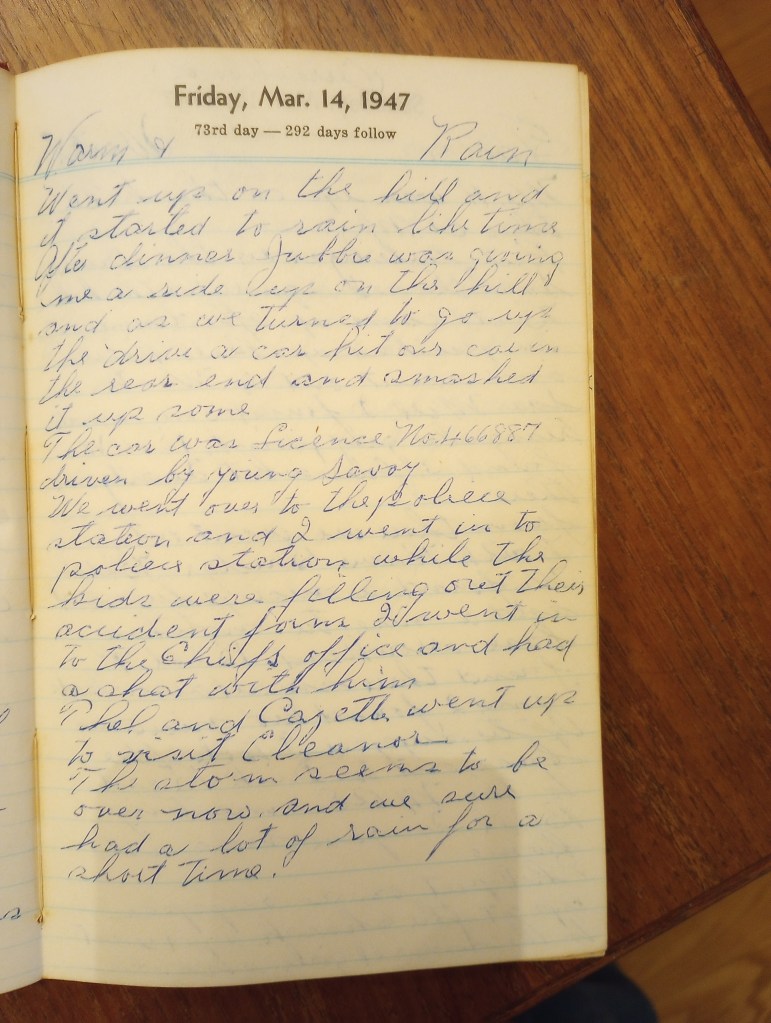 Friday, Mar. 14, 1947
73rd day — 292 days follow
Warm & Rain
Went up on the hill and
it started to rain like time
After dinner Jubbie was giving
me a ride up on the hill
and as we turned to go up
the drive a car hit our car in
the rear end and smashed
it up some
The car was Licence No. 466887
driven by young Savoy
We went over to the police
station and I went in to
police station while the
kids were filling out their
accident forms I went in
to the Chiefs office and had
a chat with him
Thel and went up
to visit Eleanor
Th storm seems to be
over now and we sure
had a lot of rain for a
short time.